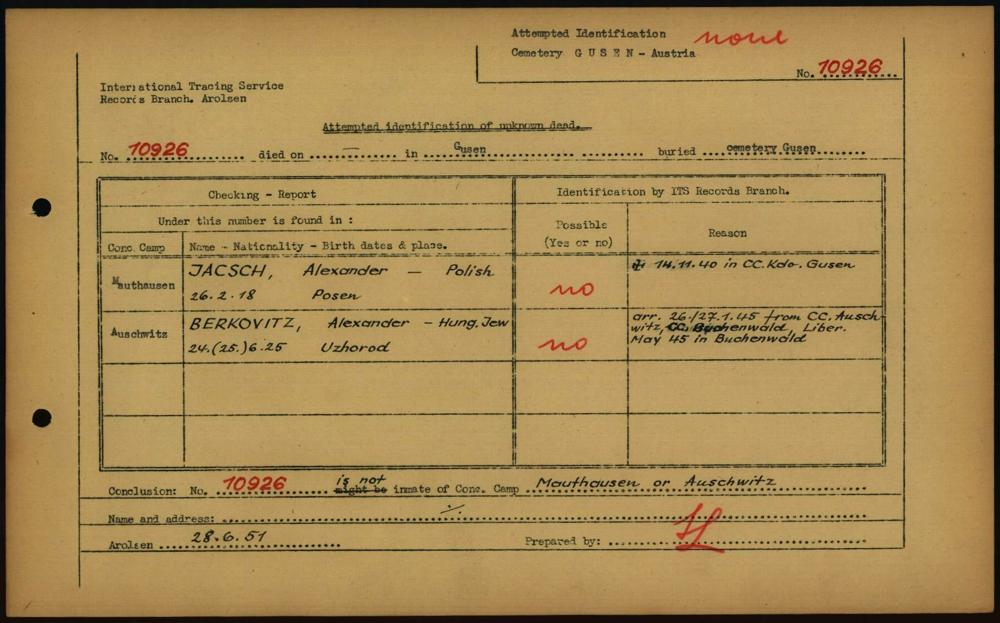 Attempted Identification none
Cemetery G U S E N - Austria
No. 10926
International Tracing Service
Records Branch. Arolsen
Attempted identification of unknown dead.
No. 10926 died on — in Gusen buried cemetery Gusen
Checking - Report
Identification by ITS Records Branch.
Under this number is found in :
Possible
(Yes or no)
Reason
Conc. Camp
Name - Nationality - Birth dates & place.
Mauthausen
JACSCH, Alexander — Polish
26.2.18 Posen
no
14.11.40 in CC. Kdo. Gusen
Auschwitz
BERKOVITZ, Alexander - Hung. Jew
24.(25.)6.25 Uzhorod
no
arr. 26./27.1.45 from CC. Ausch
witz, CC. Buchenwald, Liber.
May 45 in Buchenwald
is not
Conclusion: No. 10926 might be inmate of Conc. Camp Mauthausen or Auschwitz
Name and address: ./.
Arolsen 28.6.51
Prepared by: